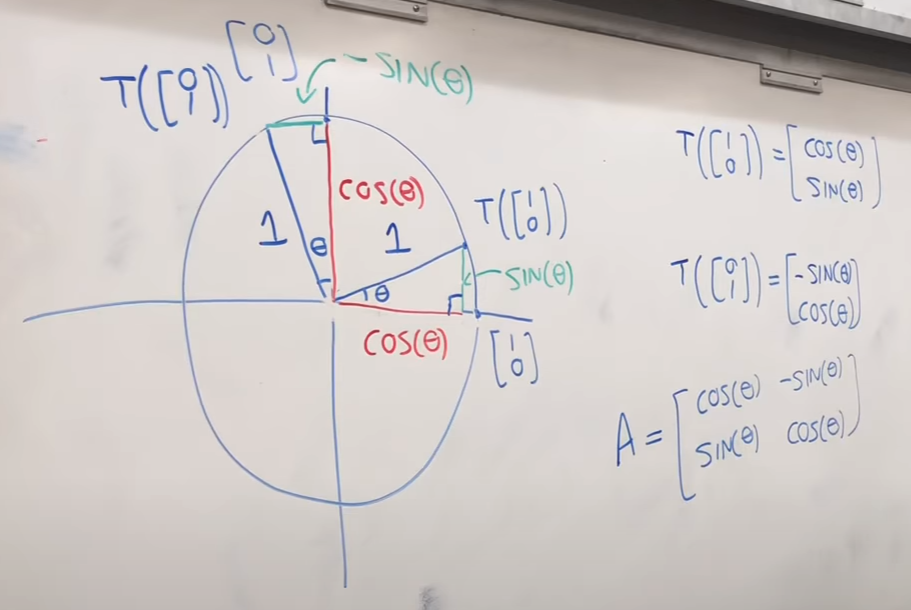 [0
1]
T([0
1])
-SIN(θ)
COS(θ)
1
θ
1
T([1
0])
SIN(θ)
θ
COS(θ)
[1
0]
T([1
0]) = [COS(θ)
SIN(θ)]
T([0
1]) = [-SIN(θ)
COS(θ)]
A = [COS(θ) -SIN(θ)
SIN(θ) COS(θ)]